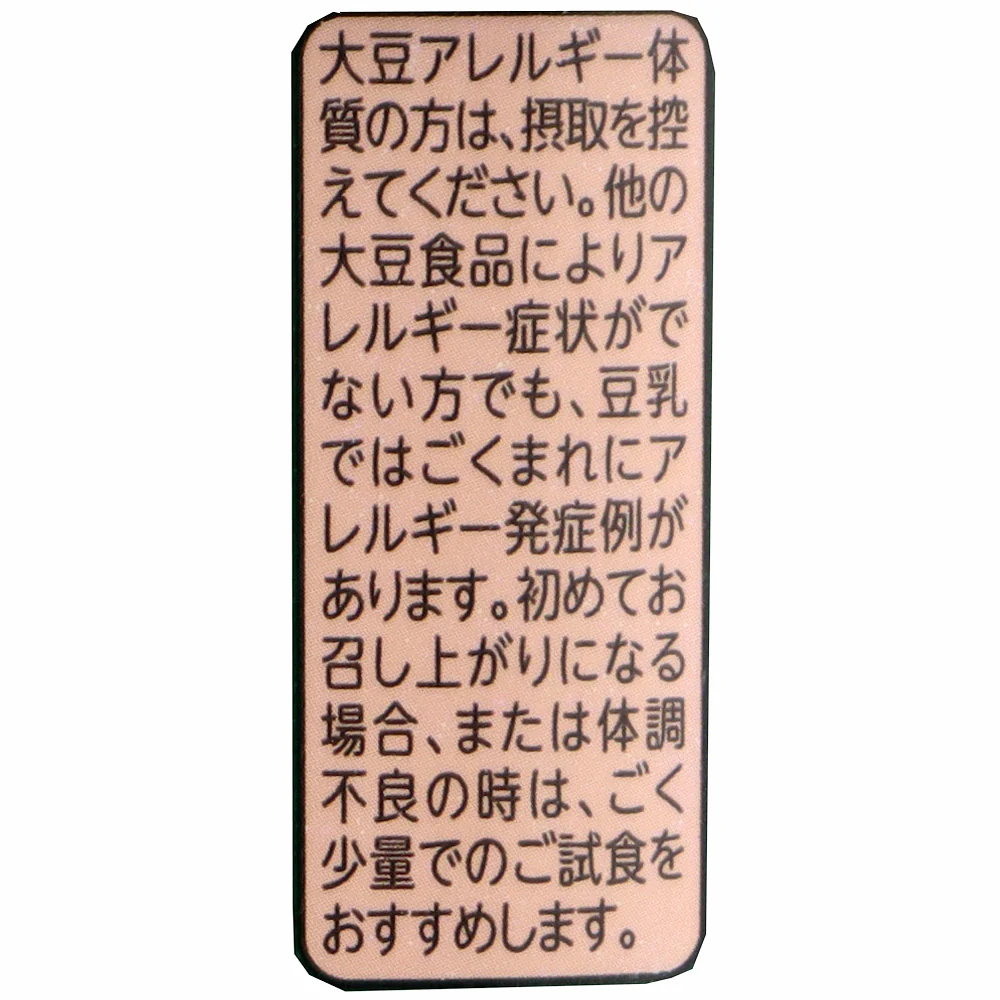 大豆アレルギー体
質の方は、摂取を控
えてください。他の
大豆食品によりア
レルギー症状がで
ない方でも、豆乳
ではごくまれにア
レルギー発症例が
あります。初めてお
召し上がりになる
場合、または体調
不良の時は、ごく
少量でのご試食を
おすすめします。